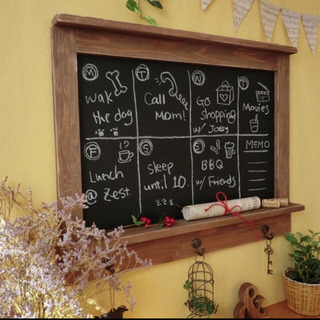 M
Wak
the dog
T
Call
Mom!
W
Go
shopping
w/ Joey
T
Movies
F
Lunch
@ Zest.
S
sleep
until 10.
zzz
S
BBQ
w/ Friends
MEMO